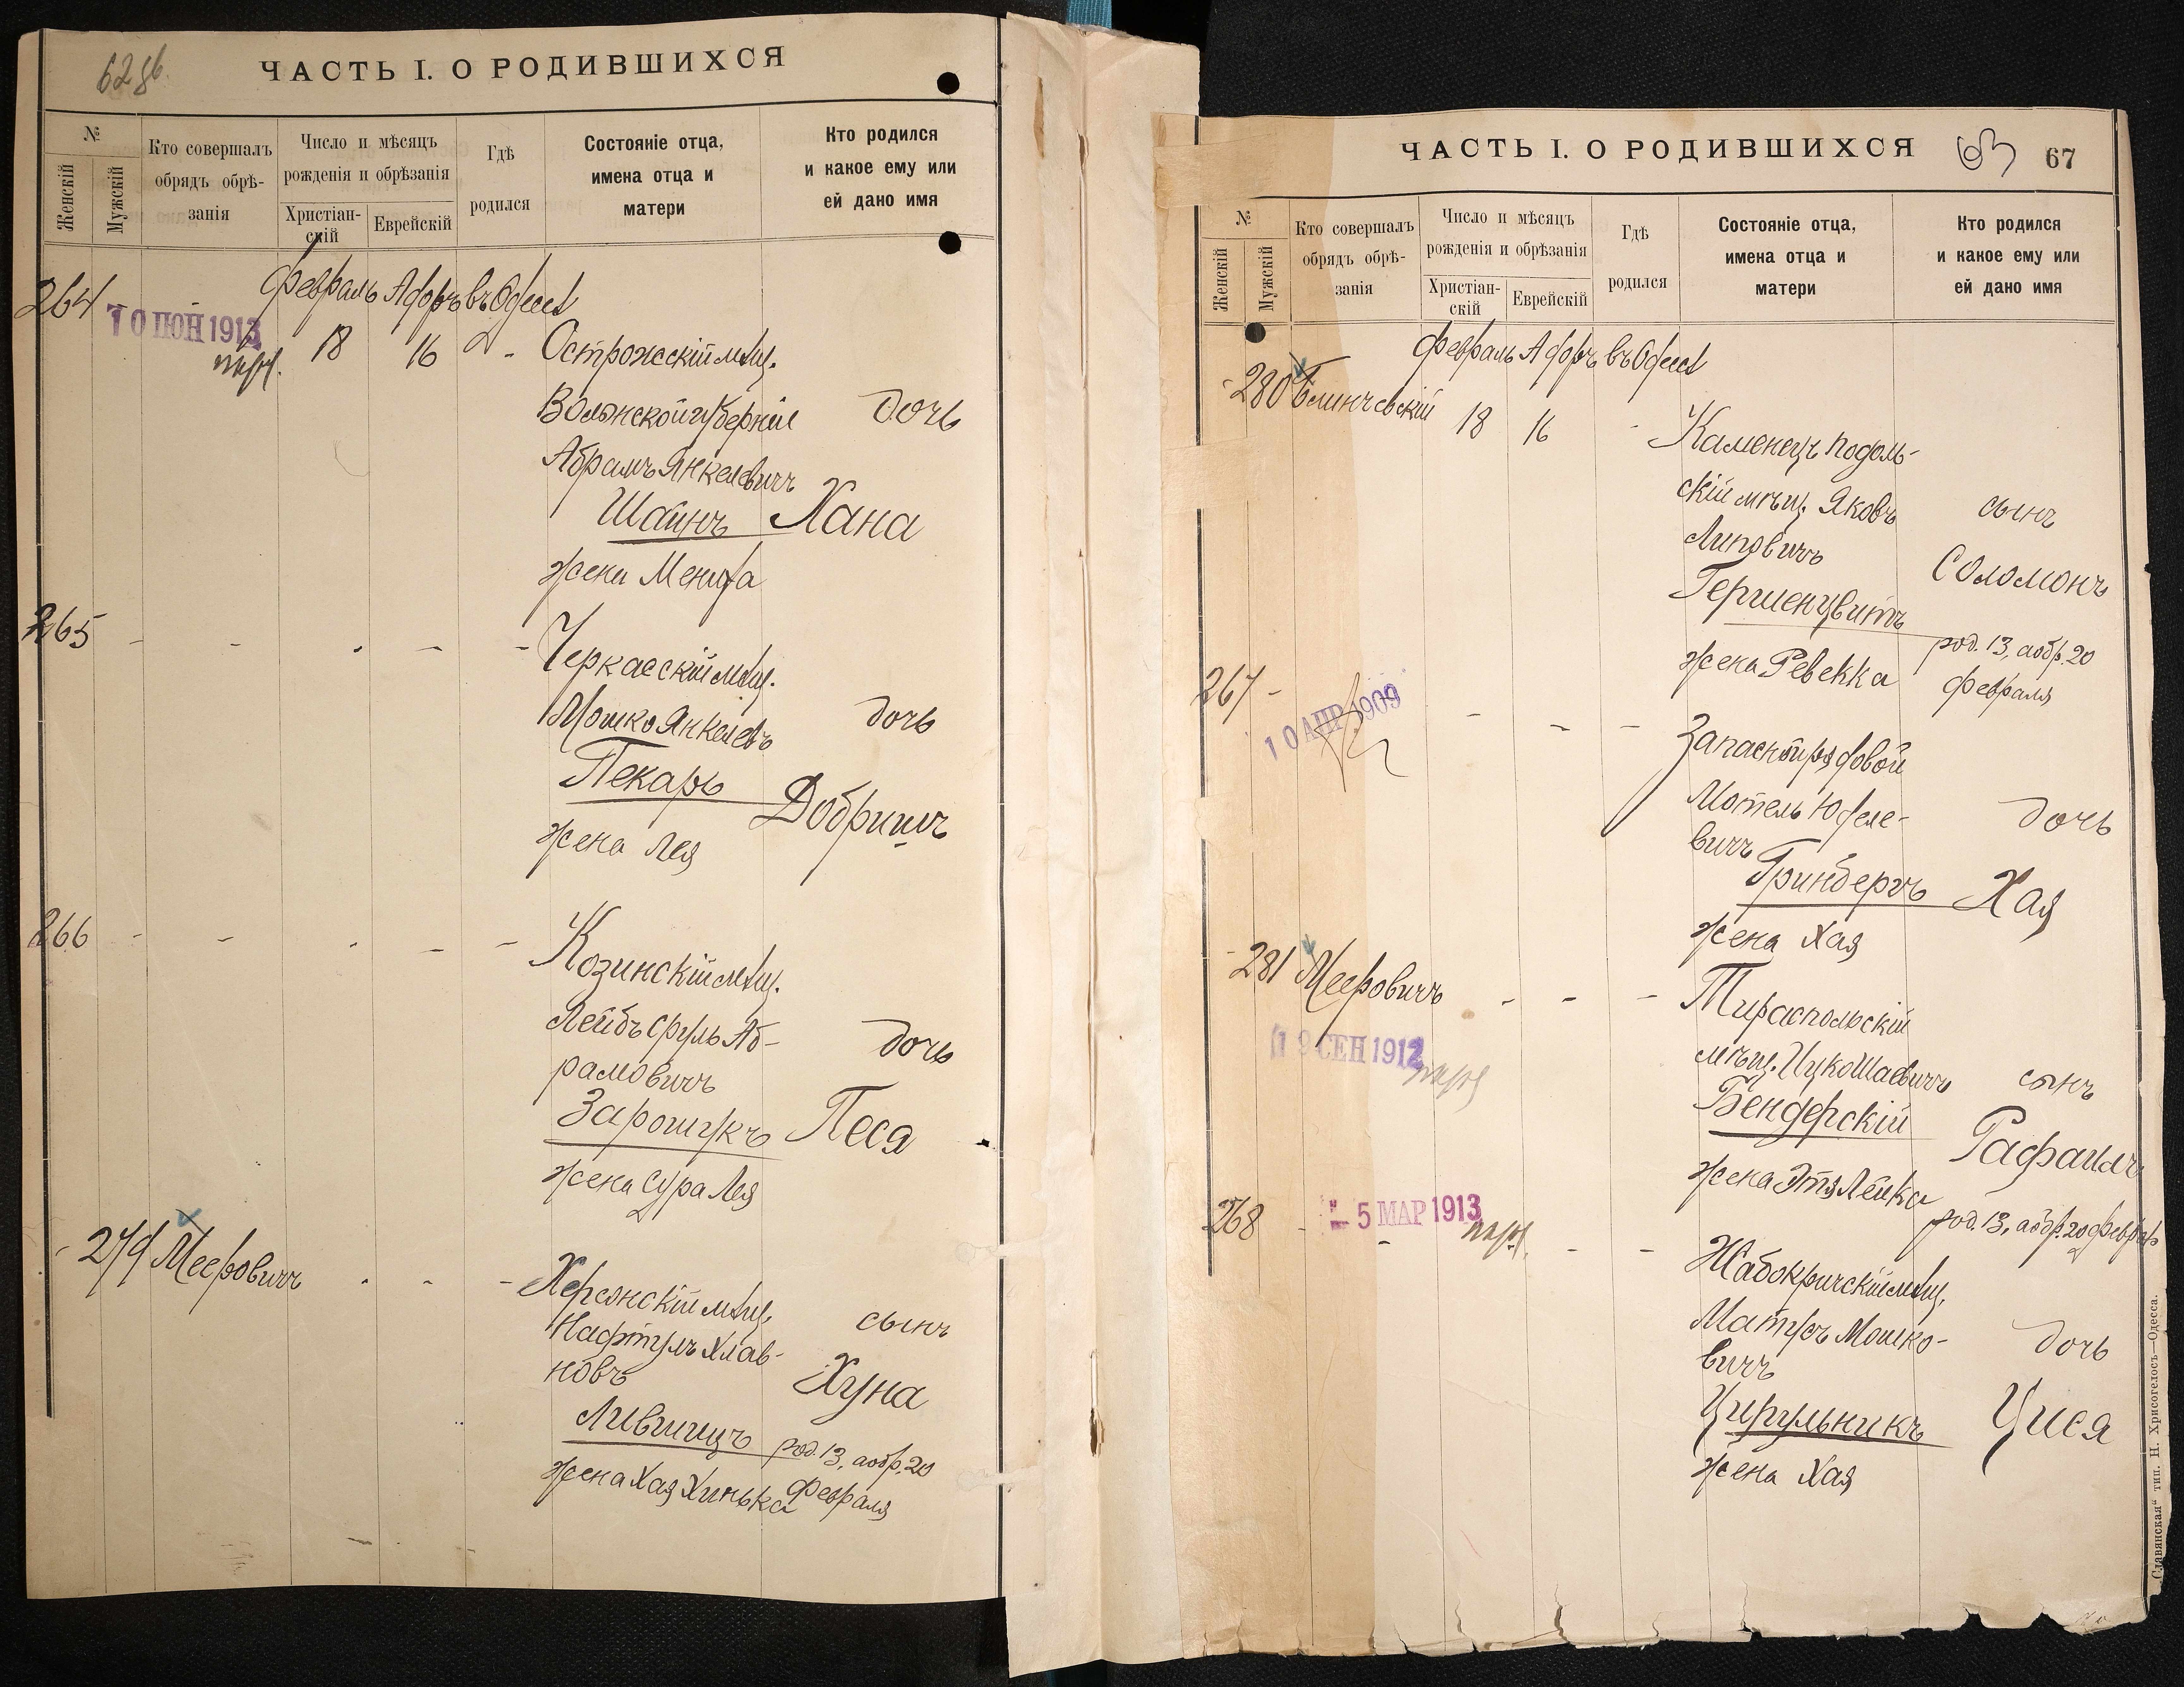 62 об.
ЧАСТЬ I. О РОДИВШИХСЯ
№
Женскій
Мужскій
Кто совершалъ
обрядъ обрѣ-
занія
Число и мѣсяцъ
рожденія и обрѣзанія
Христіан-
скій
Еврейскій
Гдѣ
родился
Состояніе отца,
имена отца и
матери
Кто родился
и какое ему или
ей дано имя
Февраль Адоръ въ Одессѣ
264
10 ІЮН 1913
18 16 - Острожскій мѣщ.
Волынской губерніи дочь
Абрамъ Янкелевичъ
Шаинъ Хана
жена
265 - - - - - Черкасскій мѣщ.
Мошко Янкелевъ дочь
Пекарь Добришъ
жена Лея
266 - - - - - Козинскій мѣщ.
Лейбъ Сруль Аб- дочь
рамовичъ
Зарощукъ Песя
жена Сура Лея
- 279 Мееровичъ - - - Херсонскій мѣщ.
сынъ
Нафтулъ Хлав-
новъ Хуна
Лившицъ род. 13, а обр. 20
жена Хая Хинька Февраля
ЧАСТЬ I. О РОДИВШИХСЯ 63 67
№
Женскій
Мужскій
Кто совершалъ
обрядъ обрѣ-
занія
Число и мѣсяцъ
рожденія и обрѣзанія
Христіан-
скій
Еврейскій
Гдѣ
родился
Состояніе отца,
имена отца и
матери
Кто родился
и какое ему или
ей дано имя
Февраль Адоръ въ Одессѣ
- 280 Блинчевскій 18 16 - Каменецъ Подоль-
скій мѣщ. Яковъ сынъ
Липовичъ
Соломонъ
Гершенцвитъ
род. 13, а обр. 20
жена Ревекка Февраля
267 -
10 АПР 1909
- - - Запасной рядовой
Мотель Юделе- дочь
вичъ
Гринбергъ Хая
жена Хая
- 281 Мееровичъ - - - Тираспольскій
19 СЕН 1912
мѣщ. Ицко Шаевичъ сынъ
Бендерскій
Рафаилъ
жена Этя Лейка
род. 13, а обр. 20 февраля
268 -
5 МАР 1913
- - - Жабокричскій мѣщ.
Матусъ Мошко- дочь
вичъ
Цирульникъ Цися
жена Хая
„Славянская“ тип. Н. Хрисогелосъ—Одесса.